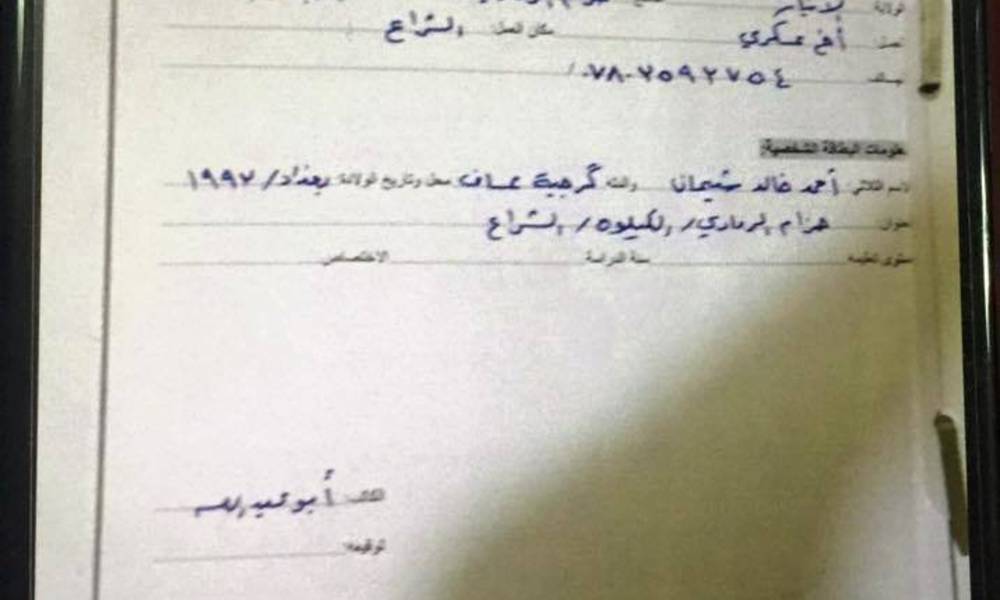 الولاية: الأنبار
عمل: أخ عسكري مكان العمل: الشراع
هاتف: ٠٧٨٠٢٥٩٢٧٥٤
معلومات البطاقة الشخصية:
الاسم الثلاثي: أحمد خالد سليمان والدته: گرجية عساف محل وتاريخ الولادة: بغداد/ ١٩٩٢
العنوان: حزام الرمادي/ الكيلو٥/ الشراع
مستوى تعليمه: سنة الدراسة: الاختصاص:
الكاتب: أبو عبدالله
توقيعه: